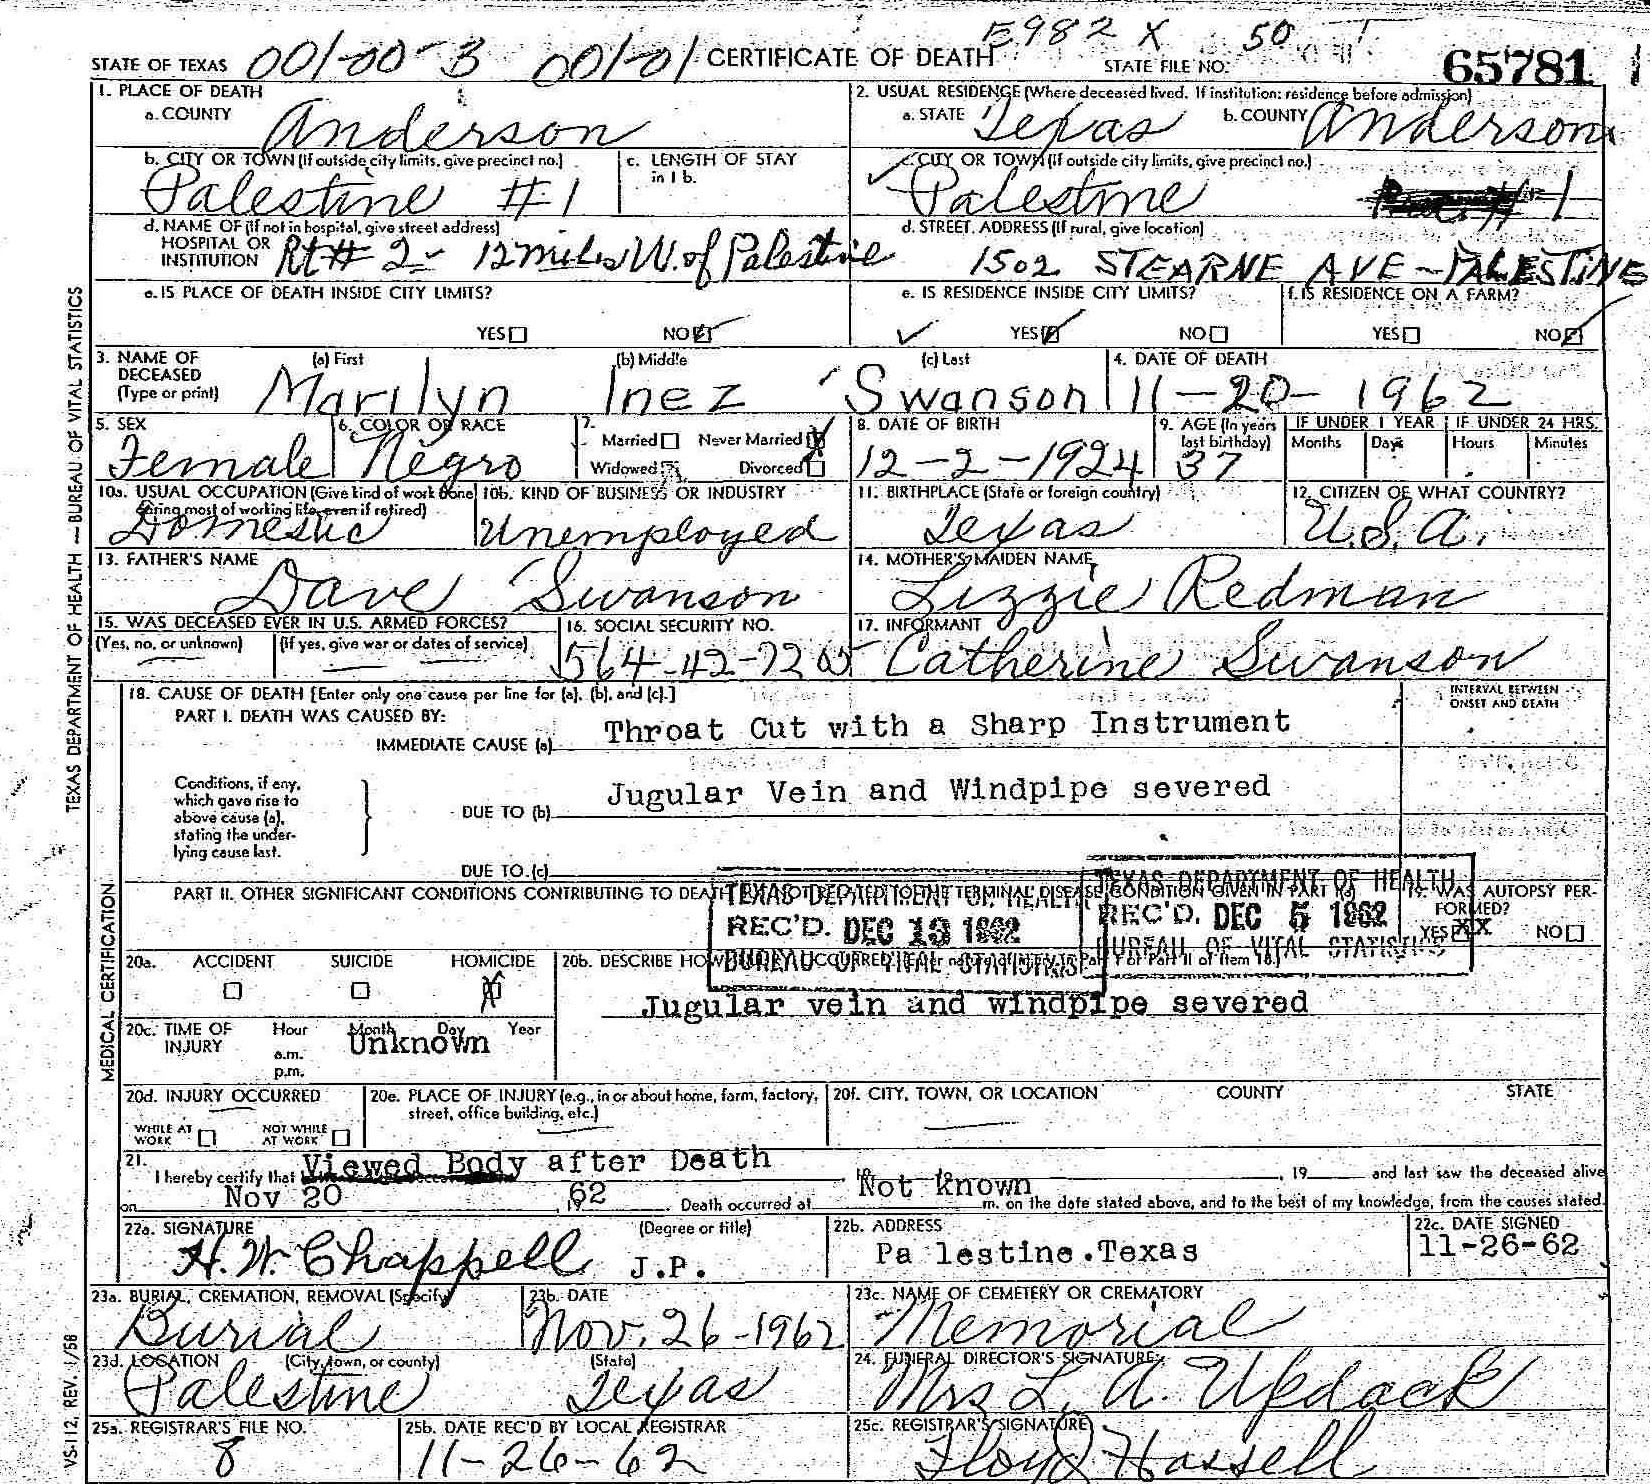 5982 X 50
STATE OF TEXAS 001-00-3 001-01 CERTIFICATE OF DEATH STATE FILE NO. 65781
1. PLACE OF DEATH
a. COUNTY Anderson
2. USUAL RESIDENCE (Where deceased lived. If institution: residence before admission)
a. STATE Texas b. COUNTY Anderson
b. CITY OR TOWN (If outside city limits, give precinct no.) Palestine #1
c. LENGTH OF STAY in 1 b.
c. CITY OR TOWN (If outside city limits, give precinct no.) Palestine 1
d. NAME OF (If not in hospital, give street address) HOSPITAL OR INSTITUTION Rt # 2 - 12 miles W. of Palestine
d. STREET ADDRESS (If rural, give location)
1502 STEARNE AVE - PALESTINE
e. IS PLACE OF DEATH INSIDE CITY LIMITS?
YES NO
e. IS RESIDENCE INSIDE CITY LIMITS?
YES NO
f. IS RESIDENCE ON A FARM?
YES NO
3. NAME OF DECEASED (Type or print)
(a) First (b) Middle (c) Last
Marilyn Inez Swanson
4. DATE OF DEATH
11-20-1962
5. SEX
Female
6. COLOR OR RACE
Negro
7.
Married Never Married X
Widowed Divorced
8. DATE OF BIRTH
12-2-1924
9. AGE (In years last birthday)
37
IF UNDER 1 YEAR
Months Days
IF UNDER 24 HRS.
Hours Minutes
10a. USUAL OCCUPATION (Give kind of work done during most of working life, even if retired)
Domestic
10b. KIND OF BUSINESS OR INDUSTRY
Unemployed
11. BIRTHPLACE (State or foreign country)
Texas
12. CITIZEN OF WHAT COUNTRY?
U.S.A.
13. FATHER'S NAME
Dave Swanson
14. MOTHER'S MAIDEN NAME
Lizzie Redman
15. WAS DECEASED EVER IN U.S. ARMED FORCES?
(Yes, no, or unknown) (If yes, give war or dates of service)
16. SOCIAL SECURITY NO.
564-42-7205
17. INFORMANT
Catherine Swanson
18. CAUSE OF DEATH [Enter only one cause per line for (a), (b), and (c).]
INTERVAL BETWEEN ONSET AND DEATH
PART I. DEATH WAS CAUSED BY:
IMMEDIATE CAUSE (a) Throat Cut with a Sharp Instrument
Conditions, if any, which gave rise to above cause (a), stating the underlying cause last.
DUE TO (b) Jugular Vein and Windpipe severed
DUE TO (c)
PART II. OTHER SIGNIFICANT CONDITIONS CONTRIBUTING TO DEATH BUT NOT RELATED TO THE TERMINAL DISEASE CONDITION GIVEN IN PART I(a)
19. WAS AUTOPSY PERFORMED?
YES XX NO
TEXAS DEPARTMENT OF HEALTH
REC'D. DEC 13 1962
BUREAU OF VITAL STATISTICS
TEXAS DEPARTMENT OF HEALTH
REC'D. DEC 5 1962
BUREAU OF VITAL STATISTICS
20a. ACCIDENT SUICIDE HOMICIDE
X
20b. DESCRIBE HOW INJURY OCCURRED. (Enter nature of injury in Part I or Part II of item 18.)
Jugular vein and windpipe severed
20c. TIME OF INJURY
Hour Month Day Year
a.m.
p.m.
Unknown
20d. INJURY OCCURRED
WHILE AT WORK NOT WHILE AT WORK
20e. PLACE OF INJURY (e.g., in or about home, farm, factory, street, office building, etc.)
20f. CITY, TOWN, OR LOCATION COUNTY STATE
21.
I hereby certify that Viewed Body after Death Not known, 19 and last saw the deceased alive
on Nov 20, 1962. Death occurred at m. on the date stated above, and to the best of my knowledge, from the causes stated.
22a. SIGNATURE (Degree or title)
H. W. Chappell J.P.
22b. ADDRESS
Pa lestine.Texas
22c. DATE SIGNED
11-26-62
23a. BURIAL, CREMATION, REMOVAL (Specify)
Burial
23b. DATE
Nov. 26-1962
23c. NAME OF CEMETERY OR CREMATORY
Memorial
23d. LOCATION (City, town, or county) (State)
Palestine Texas
24. FUNERAL DIRECTOR'S SIGNATURE
Mrs L. A. Updack
25a. REGISTRAR'S FILE NO.
8
25b. DATE REC'D BY LOCAL REGISTRAR
11-26-62
25c. REGISTRAR'S SIGNATURE
Floyd Hassell
TEXAS DEPARTMENT OF HEALTH — BUREAU OF VITAL STATISTICS
MEDICAL CERTIFICATION
VS-112, REV. 1/58